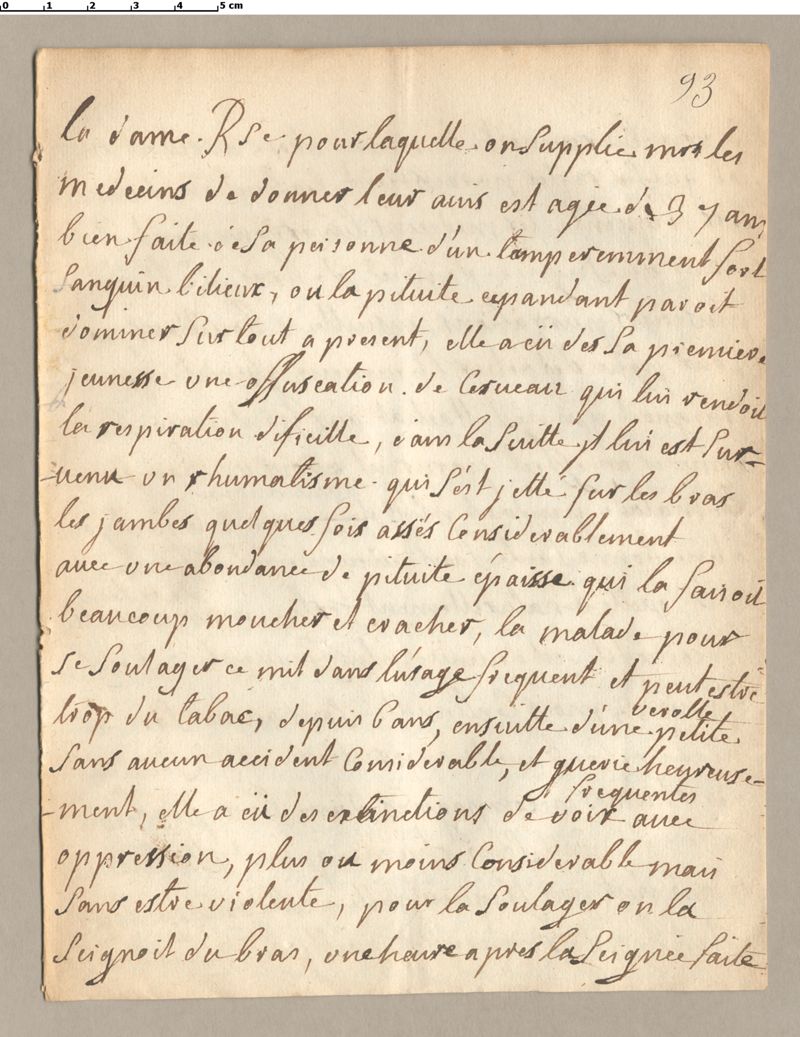 0 1 2 3 4 5 cm
93
la dame. Rse pour laquelle on supplie mrs les
medecins de donner leur auis est agée de 37 ans
bien faite de sa personne d'un temperemment fort
sanguin bilieux, ou la pituite cependant paroit
dominer sur tout a present, elle a eü des sa premiere
jeunesse une offuscation de cerueau qui lui rendoit
la respiration dificille, dans la suitte jl lui est sur-
-uenu un rhumatisme qui s'est jetté sur les bras
les jambes quelques fois assés considerablement
auec une abondance de pituite épaisse qui la faisoit
beaucoup moucher et cracher, la malade pour
se soulager ce mit dans l'usage frequent et peut estre
trop du tabac, depuis 6 ans, ensuitte d'une petite verolle
sans aucun accident considerable, et guerie heureuse-
-ment, elle a eü des extinctions de voix frequentes auec
oppression, plus ou moins considerable mais
sans estre violente, pour la soulager on la
seignoit du bras, une heure apres la seignée faite